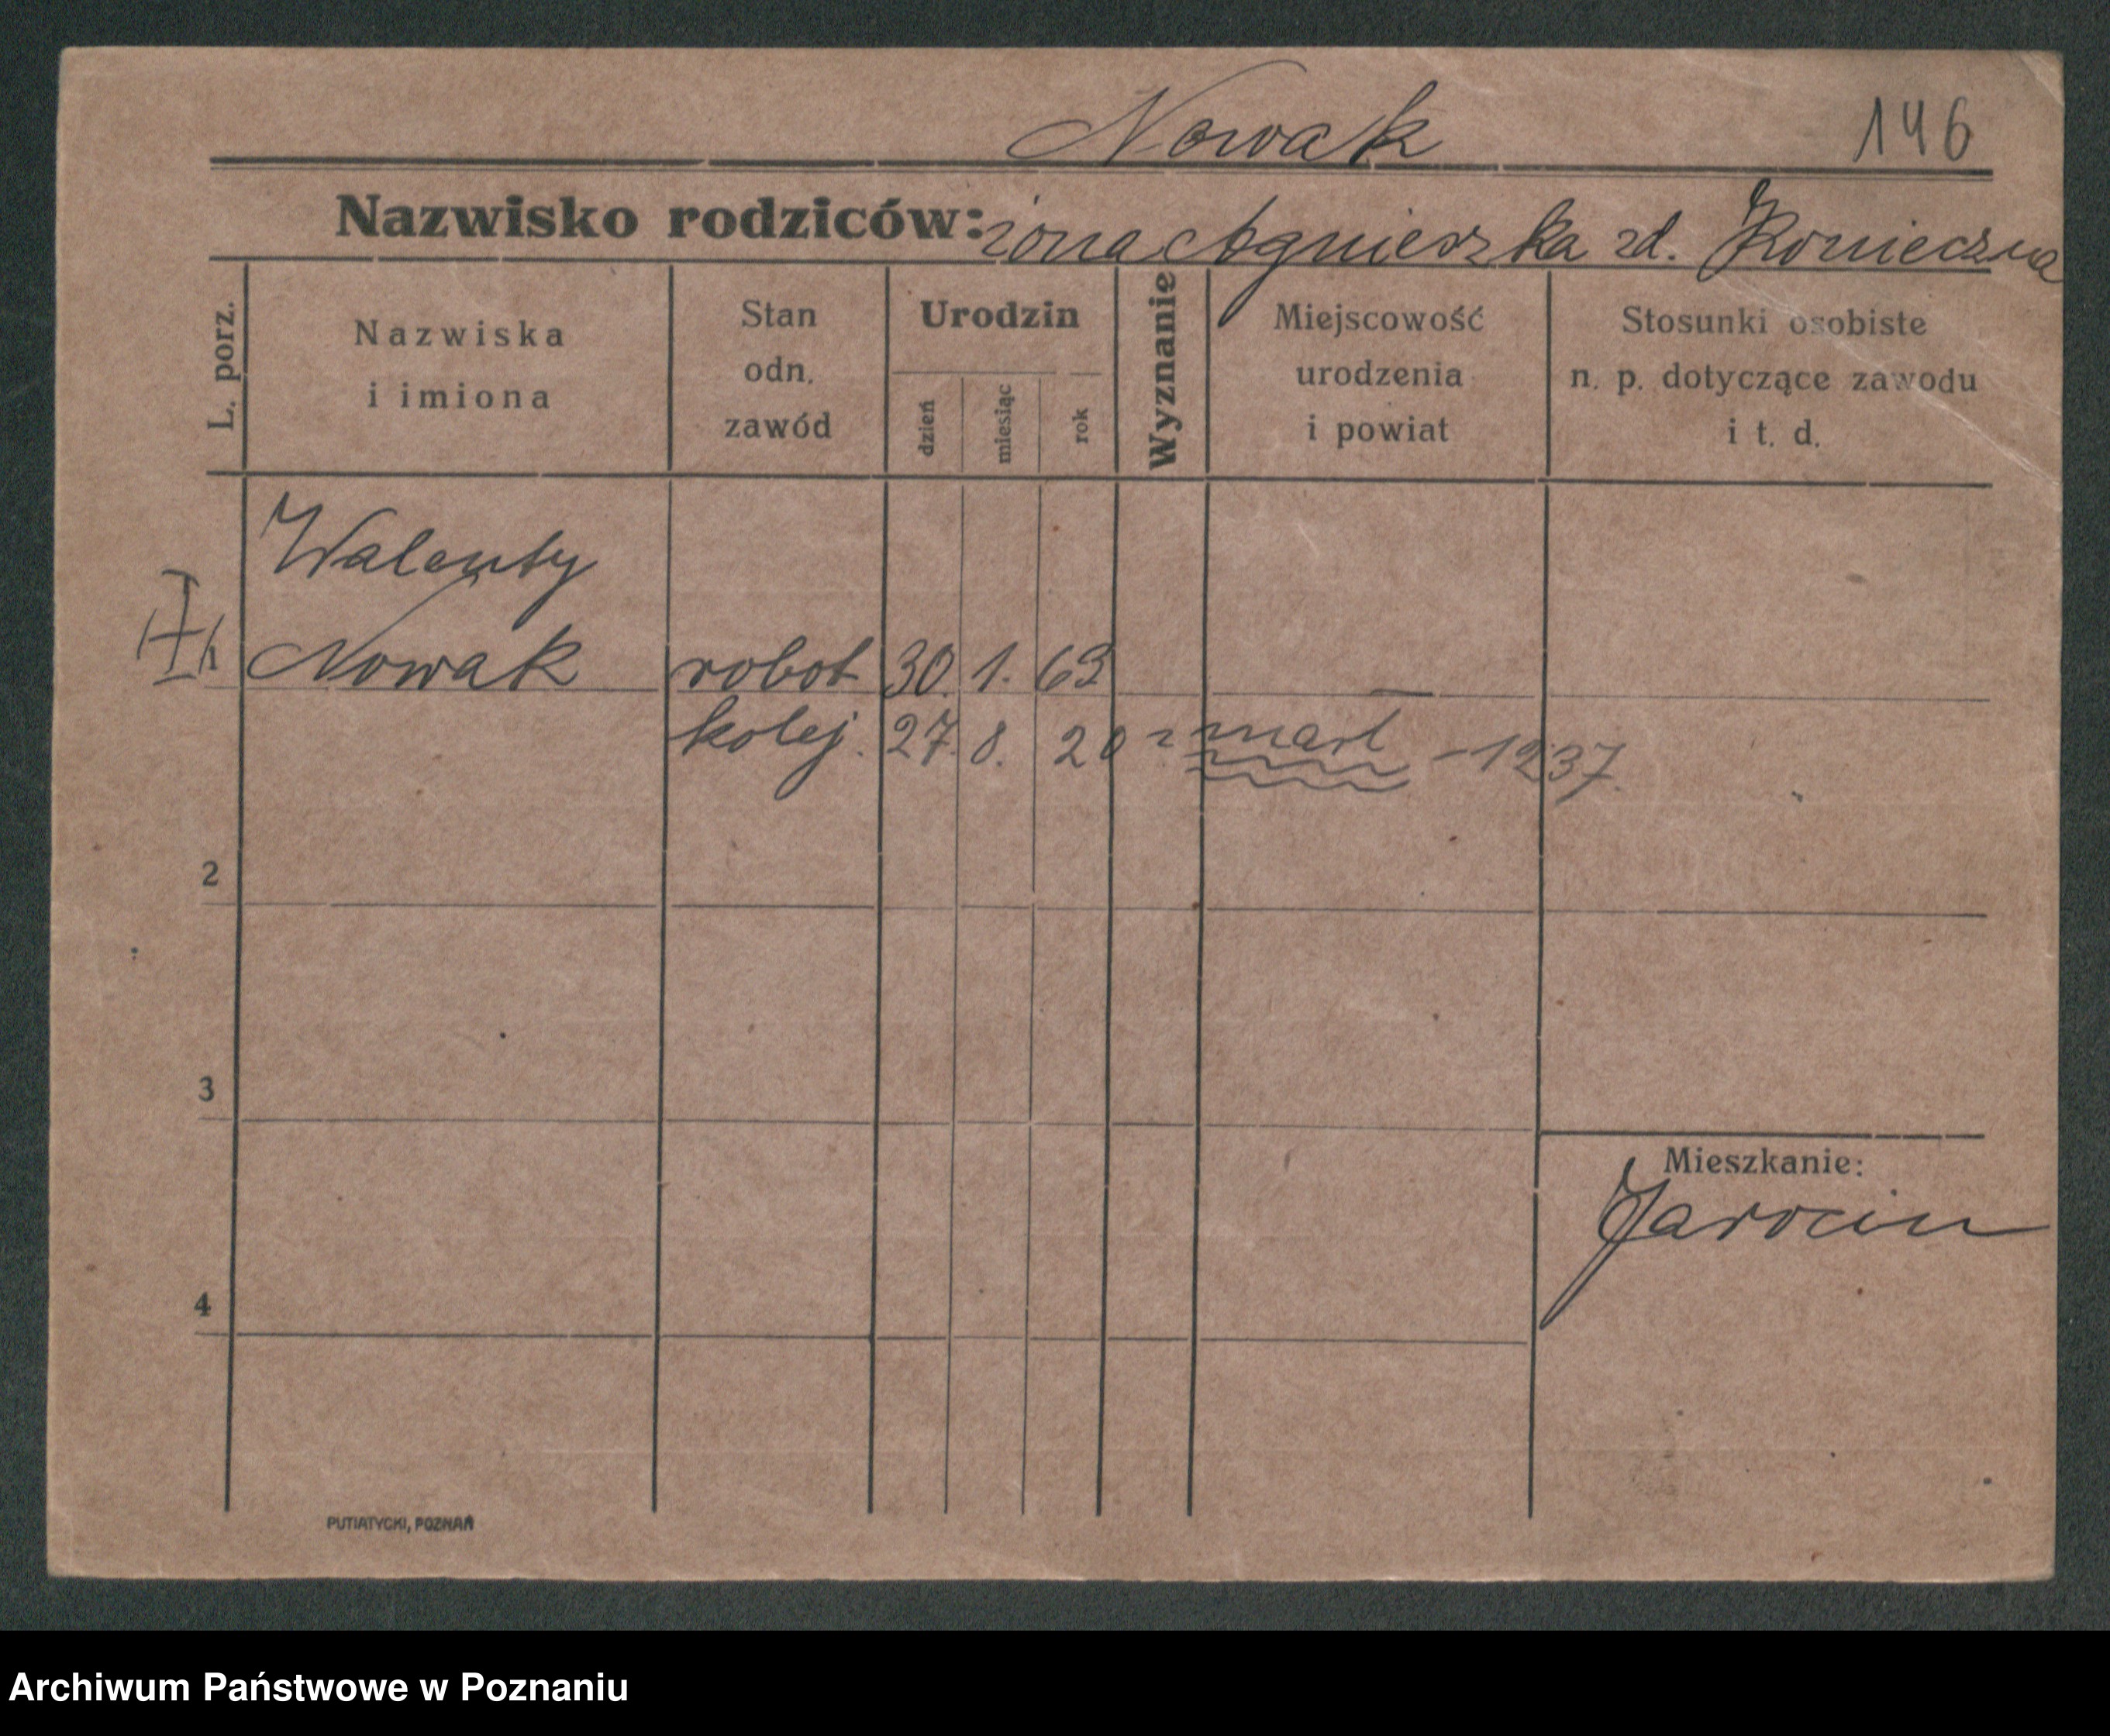 Nowak
146
Nazwisko rodziców: żona Agnieszka zd. Konieczna
L. porz.
Nazwiska
i imiona
Stan
odn.
zawód
Urodzin
dzień
miesiąc
rok
Wyznanie
Miejscowość
urodzenia
i powiat
Stosunki osobiste
n. p. dotyczące zawodu
i t. d.
Walenty
1 Nowak robot 30. 1. 63
kolej. 27. 8. 20 zmarł - 1937.
2
3
Mieszkanie:
Jarocin
4
PUTIATYCKI, POZNAŃ
Archiwum Państwowe w Poznaniu